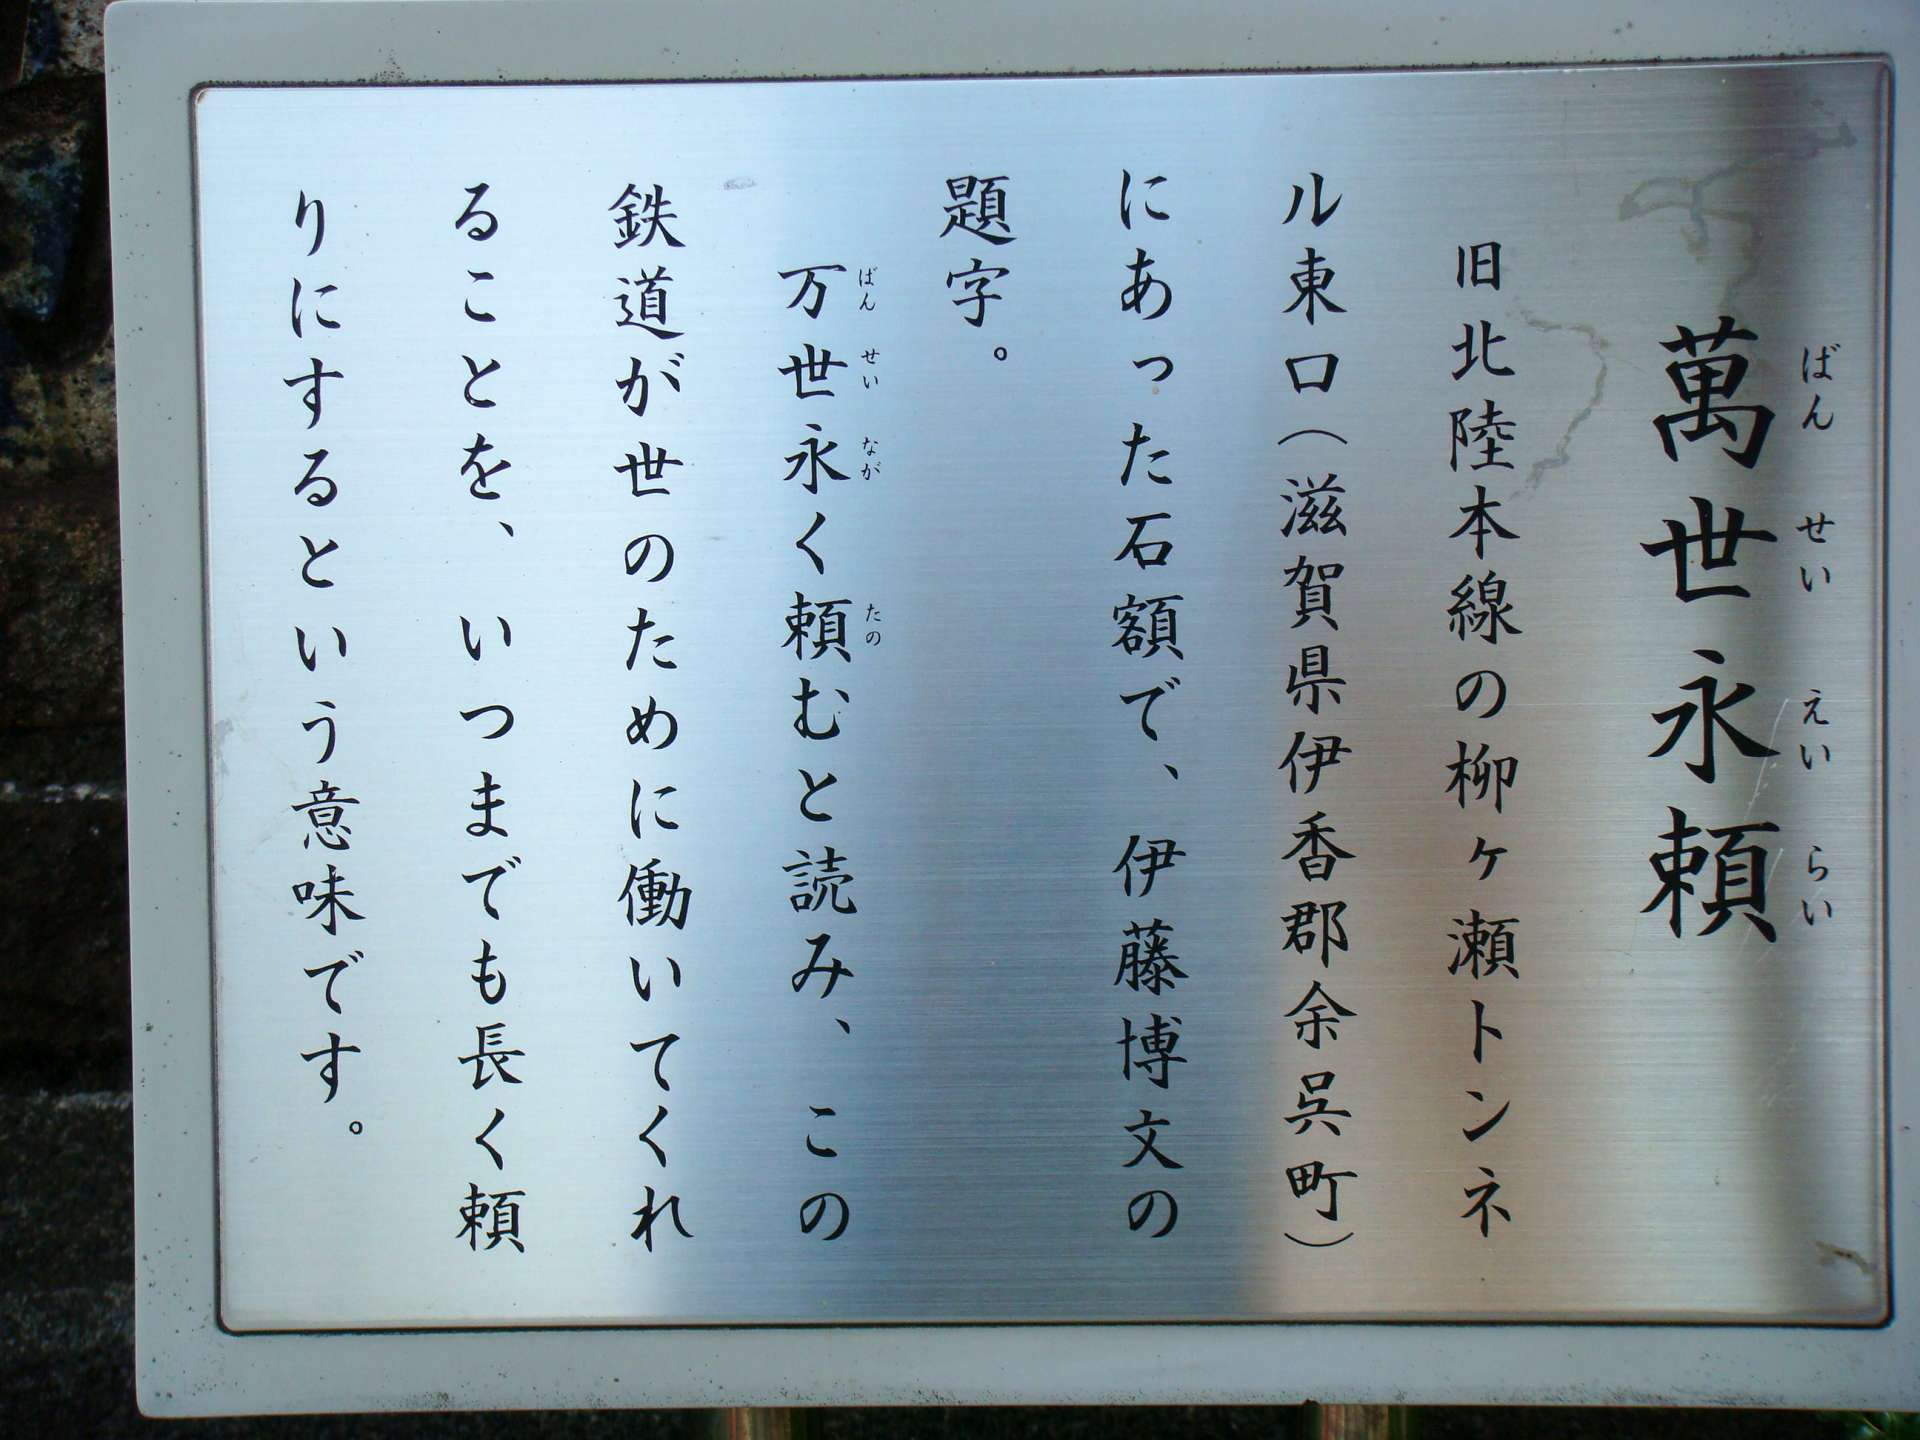 萬世永頼
ばんせいえいらい
旧北陸本線の柳ヶ瀬トンネ
ル東口（滋賀県伊香郡余呉町）
にあった石額で、伊藤博文の
題字。
万世永く頼むと読み、この
ばんせいながたの
鉄道が世のために働いてくれ
ることを、いつまでも長く頼
りにするという意味です。